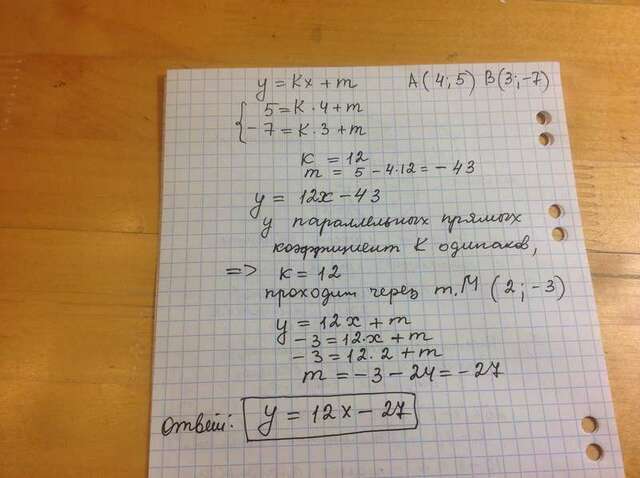 y = Kx + m A(4;5) B(3;-7)
5 = K·4 + m
-7 = K·3 + m
K = 12
m = 5 - 4·12 = -43
y = 12x - 43
у параллельных прямых
коэффициент K одинаков,
=> K = 12
проходит через т.M (2;-3)
y = 12x + m
-3 = 12·x + m
-3 = 12·2 + m
m = -3 - 24 = -27
Ответ: y = 12x - 27